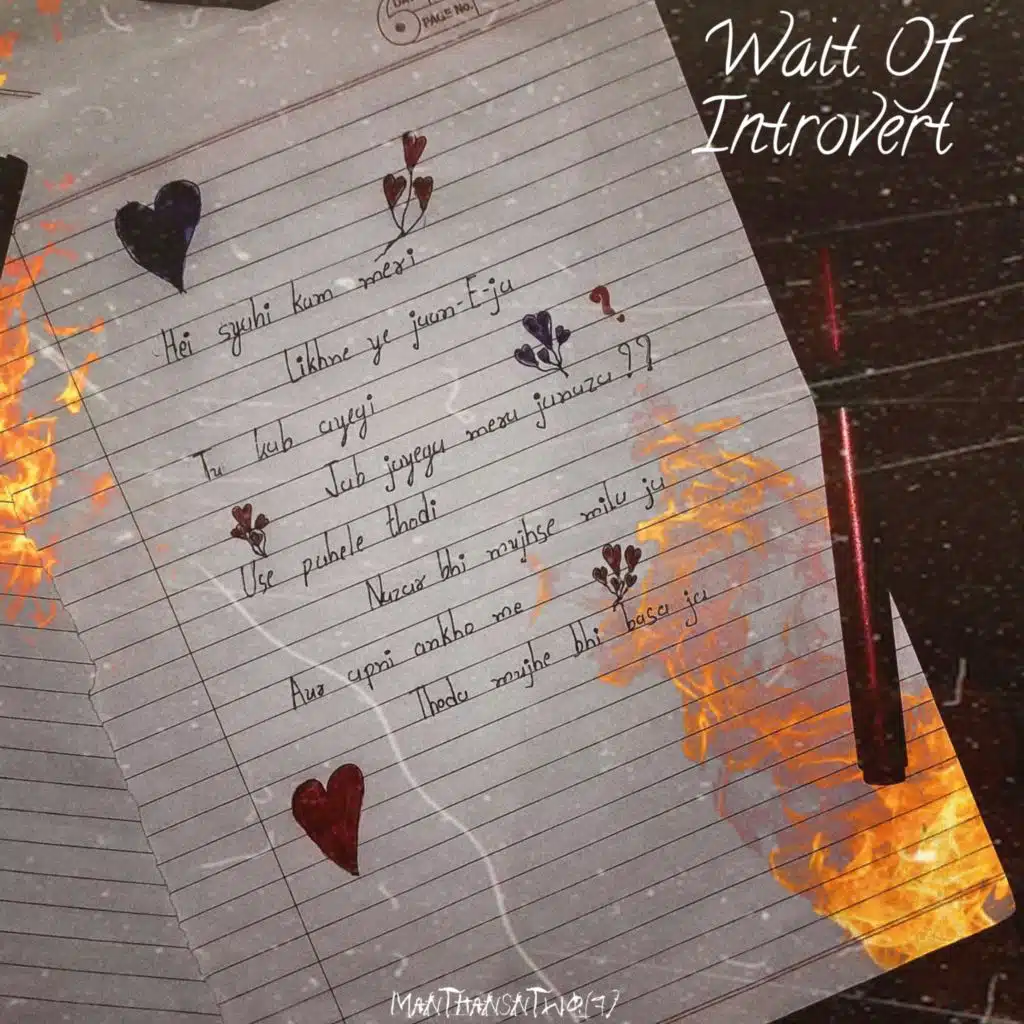 PAGE NO.
Wait Of
Introvert
Hei syahi kam meri
Likhne ye jaan-E-ja
?
Tu kab ayegi
Jab jayega mera janaza ??
Use pahele thodi
Nazar bhi mujhse mila ja
Aur apni ankho me
Thoda mujhe bhi basa ja